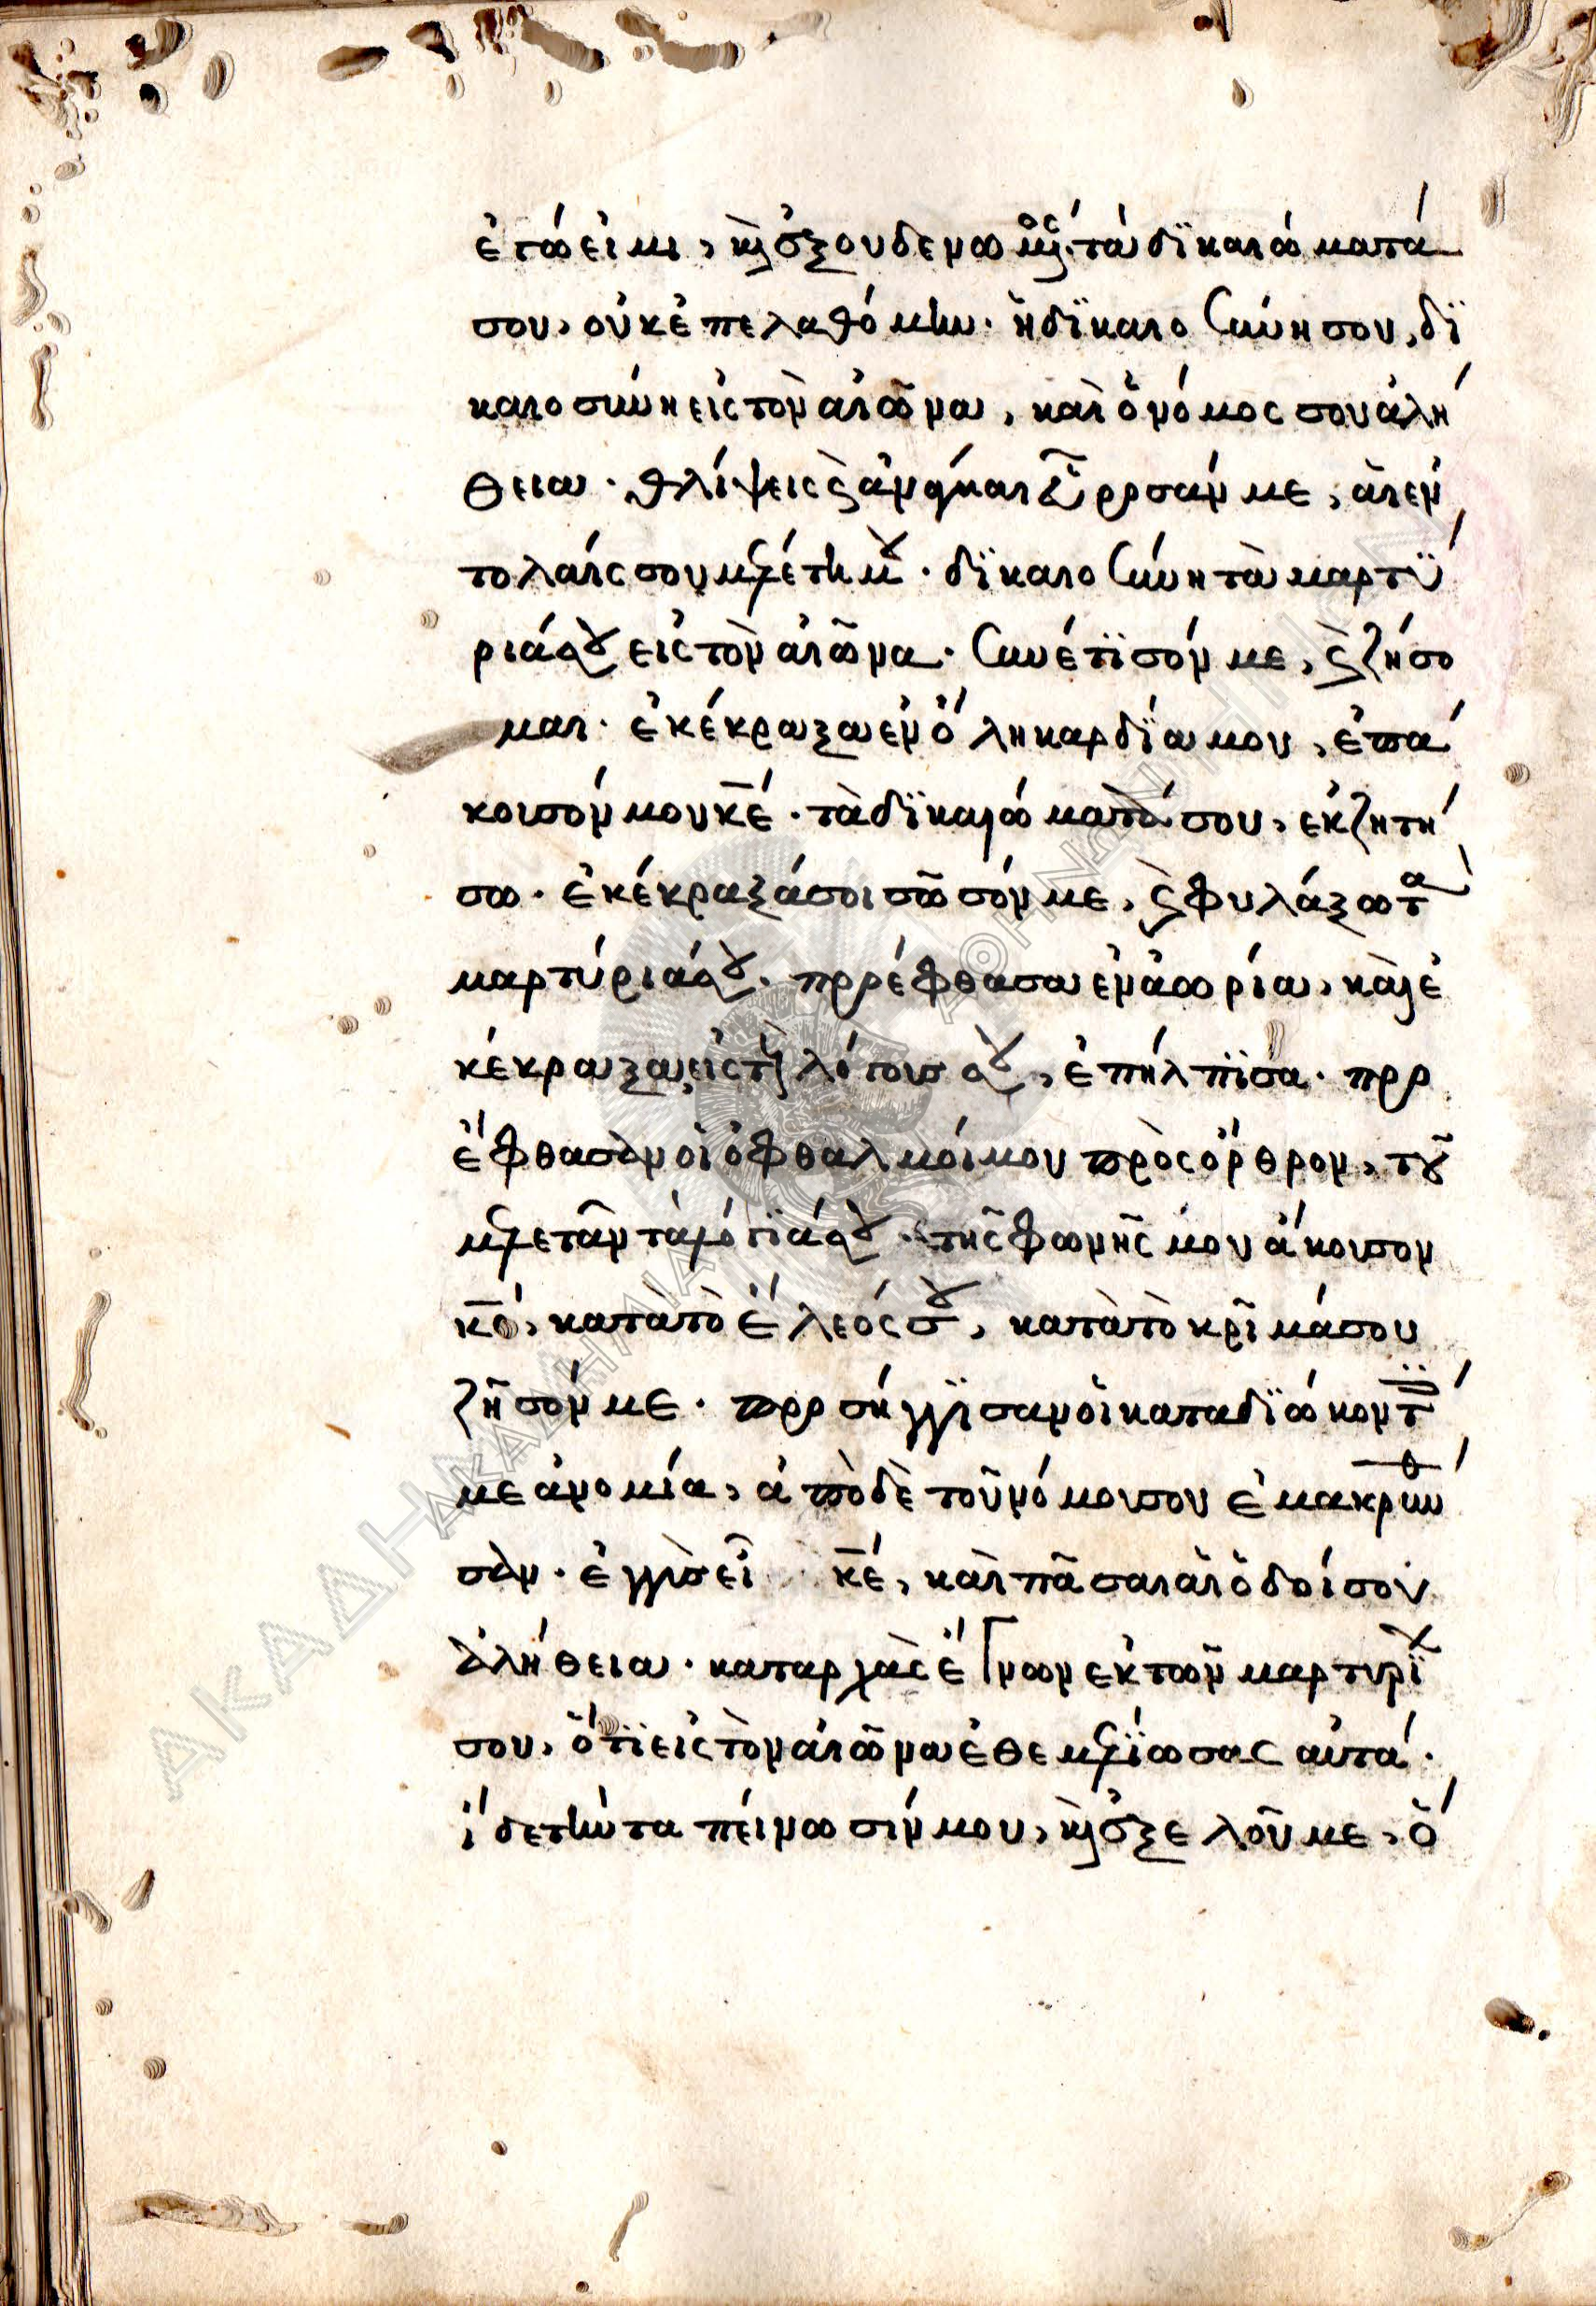 ἐγώ εἰμι, καὶ ἐξουδενωμένος· τὰ δϊκαιώματά
σου, οὐκ ἐπελαθόμην. ἡ δϊκαιοσύνη σου, δϊ
καιοσύνη εἰς τὸν αἰῶνα, καὶ ὁ νόμος σου ἀλή
θεια. θλίψεις καὶ ἀνάγκαι εὕροσάν με, αἱ ἐν
τολαί σου μελέτη μου. δϊκαιοσύνη τὰ μαρτϋ
ριά σου εἰς τὸν αἰῶνα. συνέτϊσόν με, καὶ ζήσο
μαι. ἐκέκραξα ἐν ὅλη καρδΐα μου, ἐπά
κουσόν μου κε. τὰ δϊκαιώματά σου, ἐκζητή
σω. ἐκέκραξά σοι σῶσόν με, καὶ φυλάξω τὰ
μαρτύριά σου. προέφθασα ἐν ἀωρία, καὶ ἐ
κέκραξα, εἰς τοὺς λόγους σου, ἐπήλπϊσα. προ
έφθασαν οἱ ὀφθαλμοί μου πρὸς ὄρθρον, τοῦ
μελετᾶν τὰ λόγϊά σου. τῆς φωνῆς μου ἄκουσον
κε, κατὰ τὸ ἔλεός σου, κατὰ τὸ κρῖμά σου
ζῆσόν με. προσήγγϊσαν οἱ καταδϊώκοντές
με ἀνομία, ἀπὸ δὲ τοῦ νόμου σου ἐμακρύνθη
σαν. ἐγγὺς εἶ κε, καὶ πᾶσαι αἱ ὁδοί σου
ἀλήθεια. καταρχὰς ἔγνων ἐκ τῶν μαρτυρϊῶν
σου, ὅτϊ εἰς τὸν αἰῶνα ἐθεμελΐωσας αὐτά.
ἴδε τὴν ταπείνωσίν μου, καὶ ἐξελοῦ με, ὅ